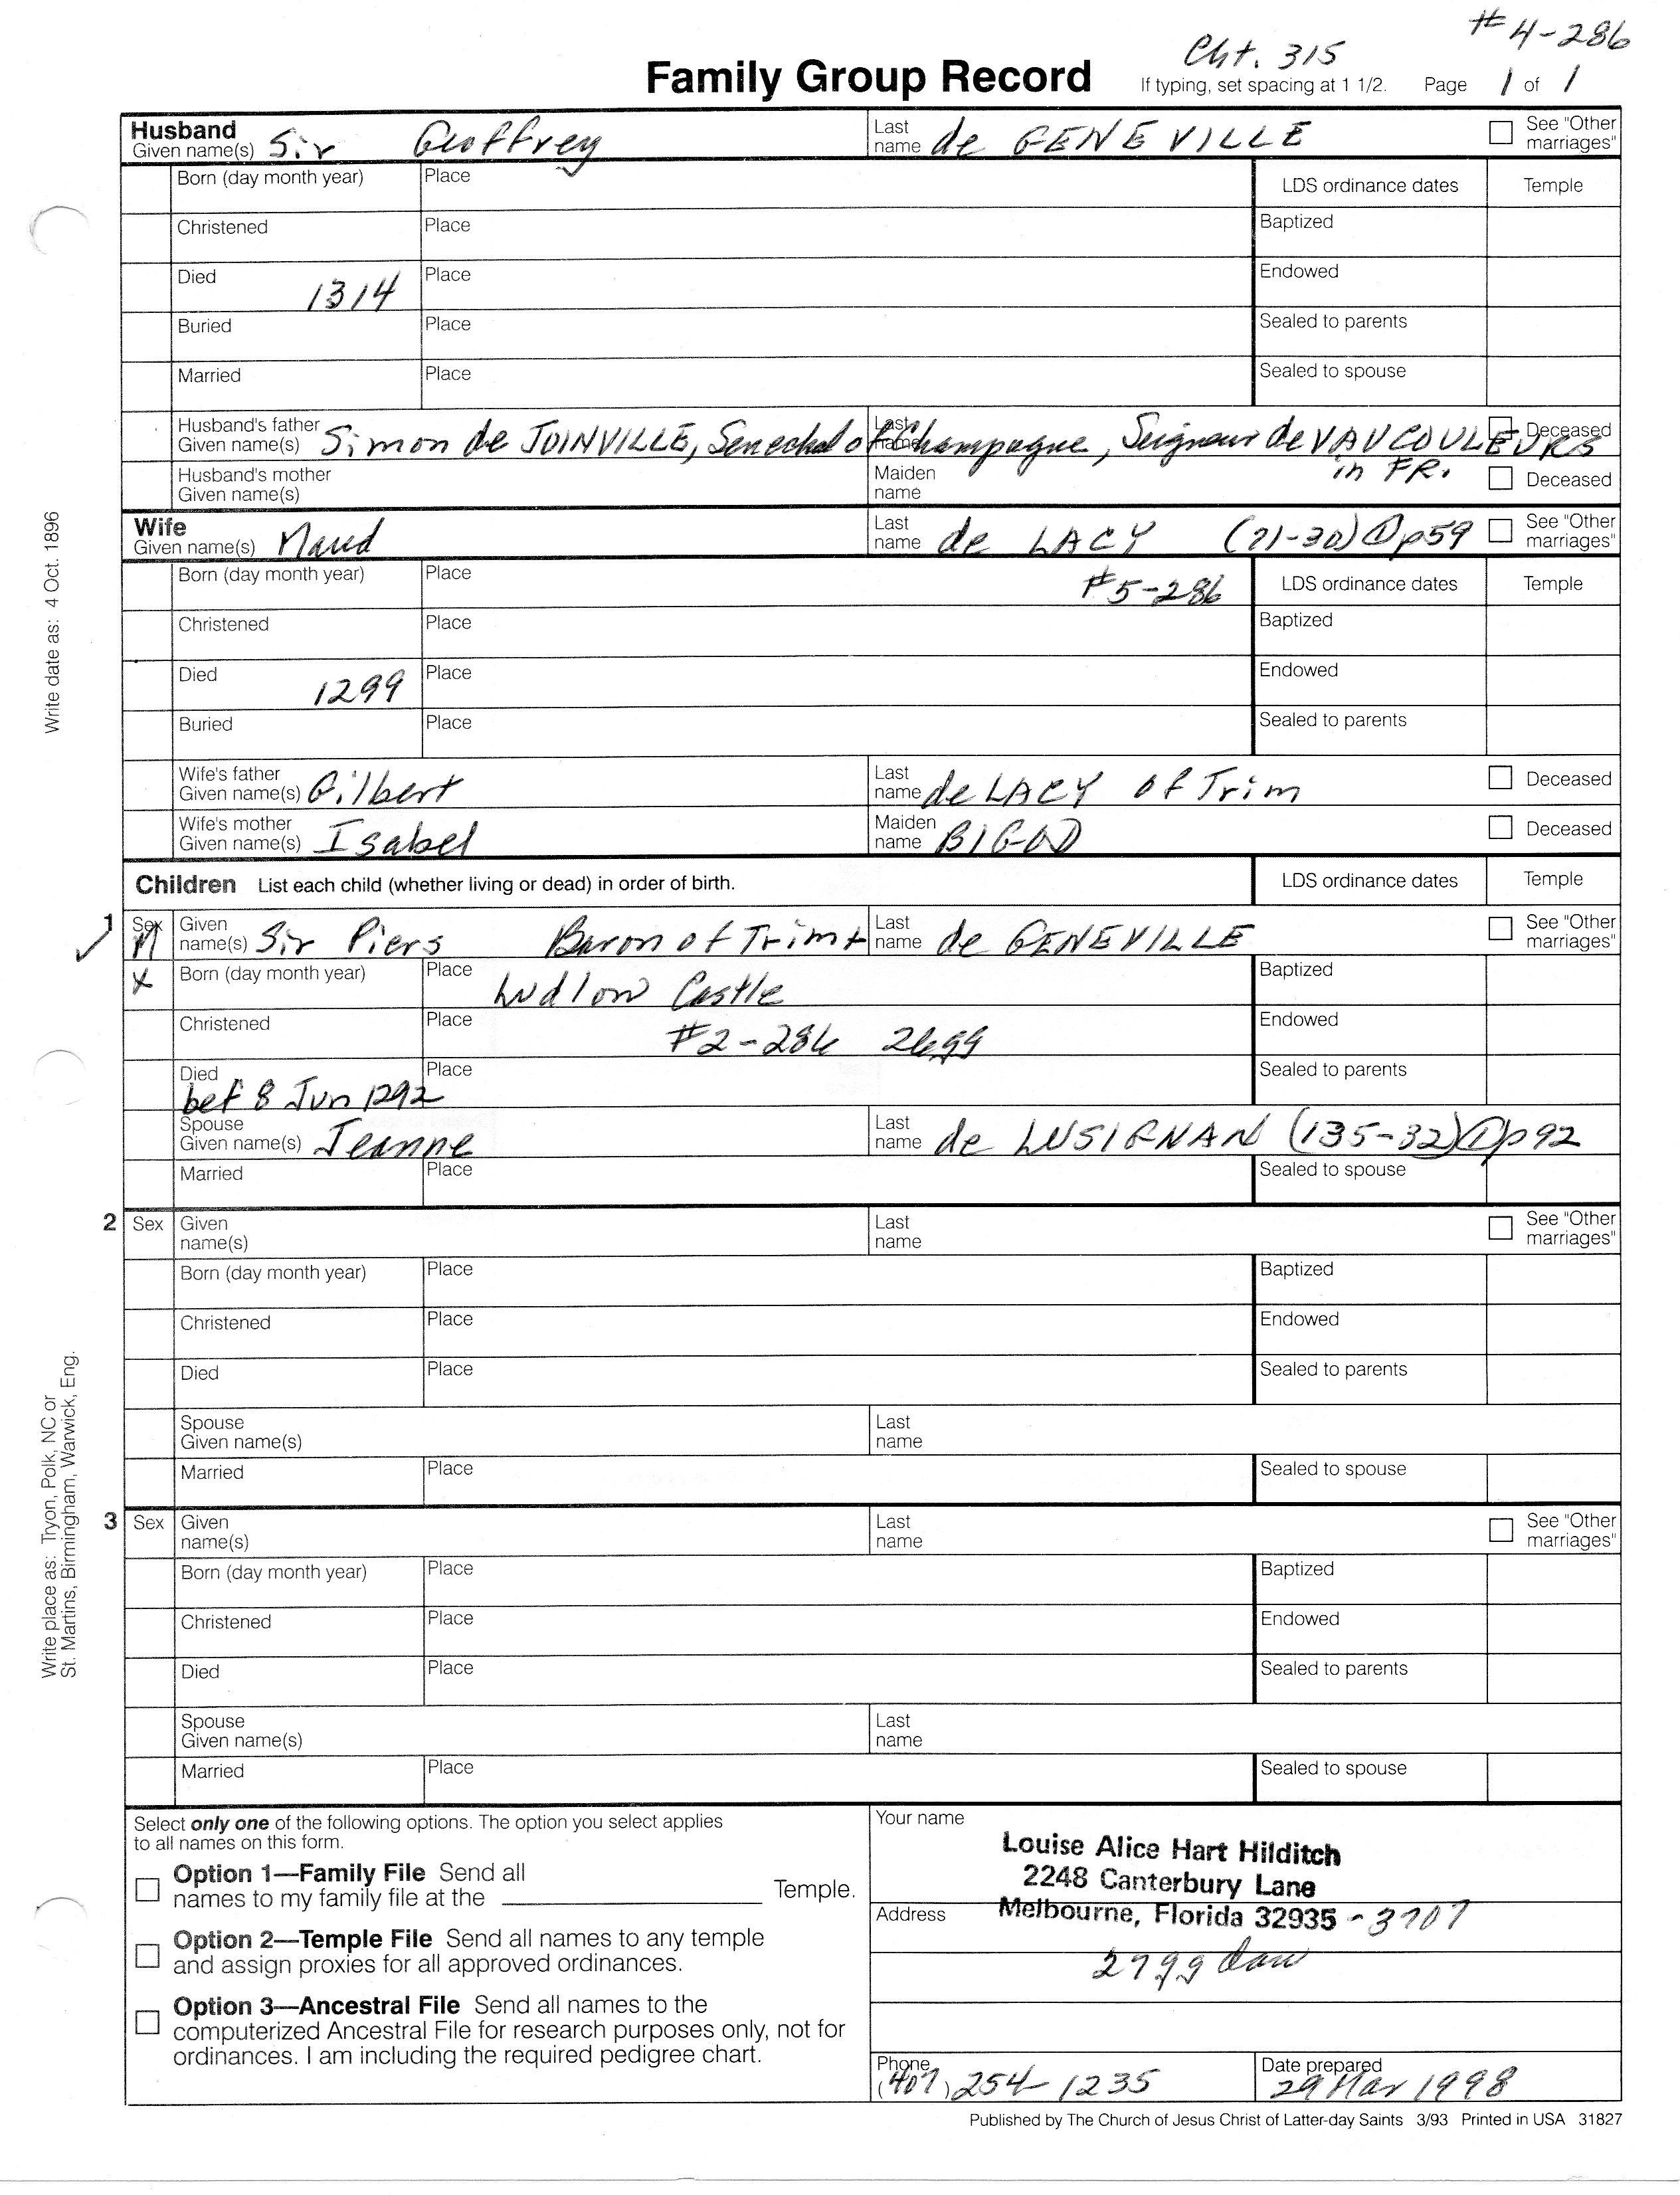 # 4-286
Cht. 315
Family Group Record If typing, set spacing at 1 1/2. Page 1 of 1
Husband
Given name(s) Sir Geoffrey Last name de GENEVILLE See "Other marriages"
Born (day month year) Place LDS ordinance dates Temple
Christened Place Baptized
Died 1314 Place Endowed
Buried Place Sealed to parents
Married Place Sealed to spouse
Husband's father Given name(s) Simon de JOINVILLE, Senechal of Champagne, Seigneur de VAUCOULEURS Last name Deceased
in FR.
Husband's mother Given name(s) Maiden name Deceased
Wife
Given name(s) Maud Last name de LACY (71-30) ① p59 See "Other marriages"
Born (day month year) Place #5-286 LDS ordinance dates Temple
Christened Place Baptized
Died 1299 Place Endowed
Buried Place Sealed to parents
Wife's father Given name(s) Gilbert Last name de LACY of Trim Deceased
Wife's mother Given name(s) Isabel Maiden name BIGOD Deceased
Children List each child (whether living or dead) in order of birth. LDS ordinance dates Temple
1 Sex M Given name(s) Sir Piers Baron of Trim + Last name de GENEVILLE See "Other marriages"
X Born (day month year) Place Ludlow Castle Baptized
Christened Place #2-286 26gg Endowed
Died bef 8 Jun 1292 Place Sealed to parents
Spouse Given name(s) Jeanne Last name de LUSIGNAN (135-32) ① p92
Married Place Sealed to spouse
2 Sex Given name(s) Last name See "Other marriages"
Born (day month year) Place Baptized
Christened Place Endowed
Died Place Sealed to parents
Spouse Given name(s) Last name
Married Place Sealed to spouse
3 Sex Given name(s) Last name See "Other marriages"
Born (day month year) Place Baptized
Christened Place Endowed
Died Place Sealed to parents
Spouse Given name(s) Last name
Married Place Sealed to spouse
Select only one of the following options. The option you select applies
to all names on this form.
Option 1—Family File Send all
names to my family file at the Temple.
Option 2—Temple File Send all names to any temple
and assign proxies for all approved ordinances.
Option 3—Ancestral File Send all names to the
computerized Ancestral File for research purposes only, not for
ordinances. I am including the required pedigree chart.
Your name
Louise Alice Hart Hilditch
2248 Canterbury Lane
Address Melbourne, Florida 32935 - 3707
27gg dau
Phone (407) 254-1235
Date prepared 29 Mar 1998
Published by The Church of Jesus Christ of Latter-day Saints 3/93 Printed in USA 31827
Write date as: 4 Oct. 1896
Write place as: Tryon, Polk, NC or
St. Martins, Birmingham, Warwick, Eng.